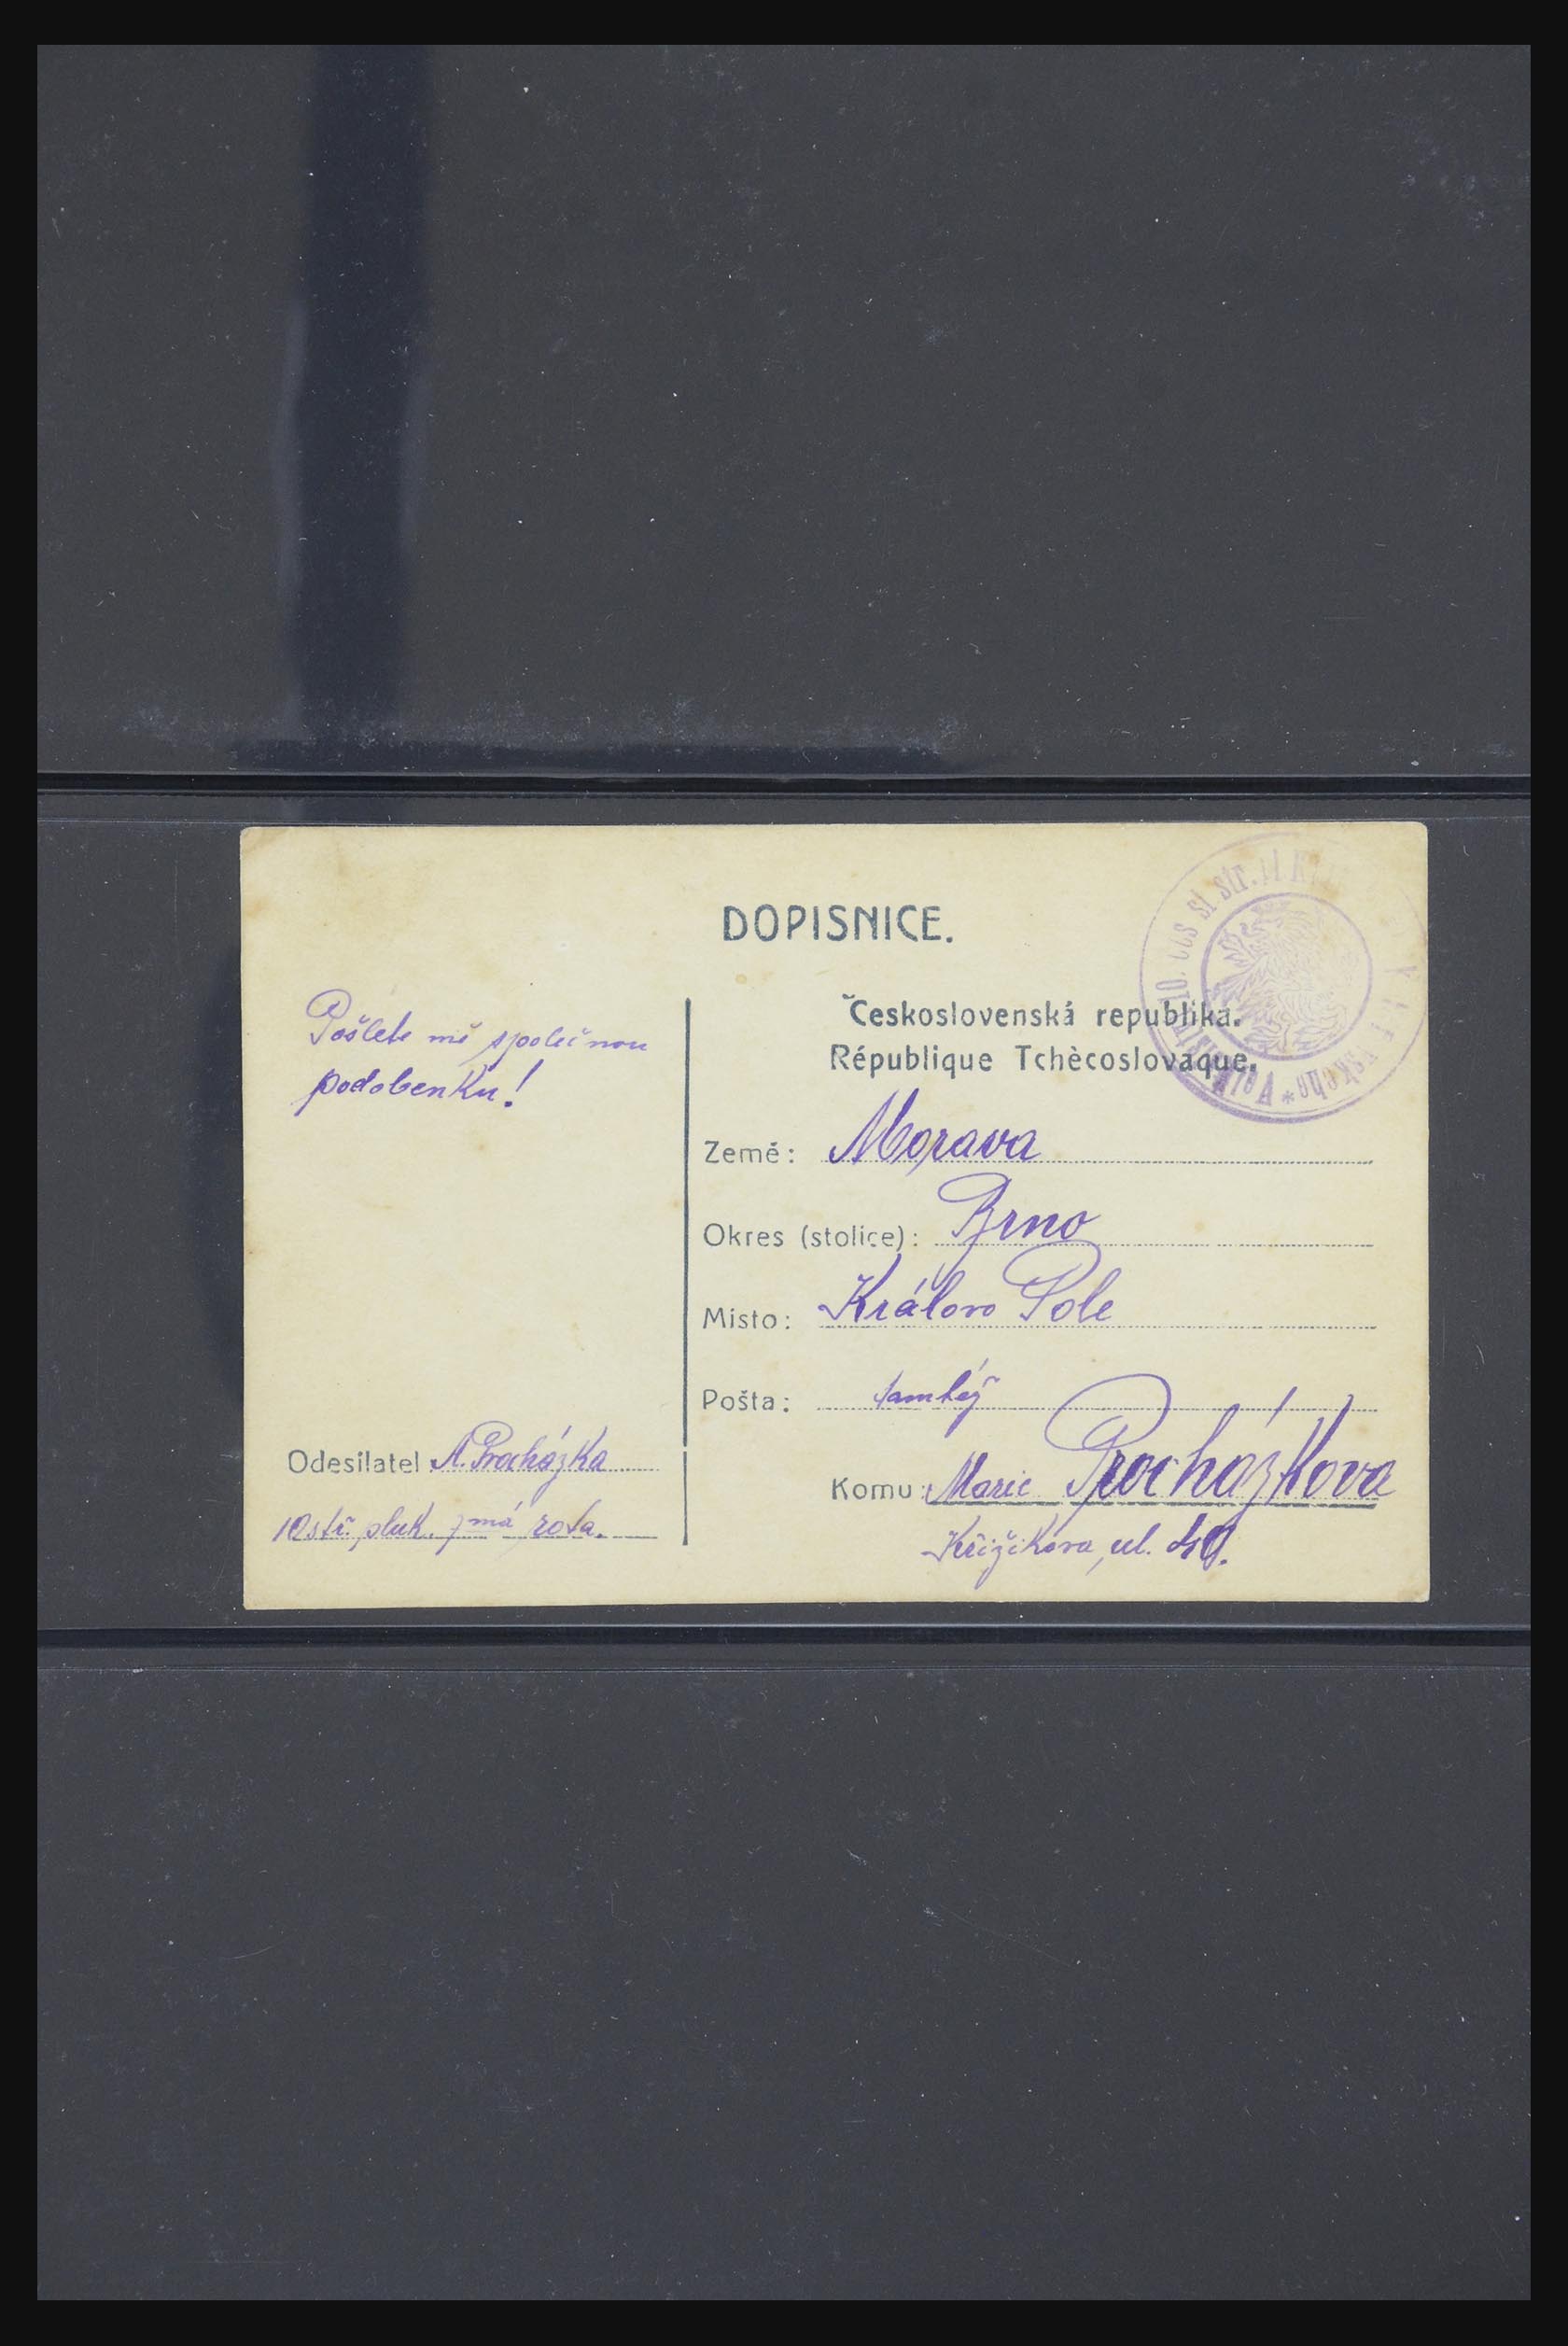 DOPISNICE.
Pošlete mě společnou
podobenku!
Československá republika.
République Tchècoslovaque.
Země: Morava
Okres (stolice): Brno
Misto: Královo Pole
Pošta: tamtéž
Odesilatel A. Procházka
10 stř. pluk. 7má rota.
Komu: Marie Procházkova
Křižikova, ul. 40.
10. čes sl str.